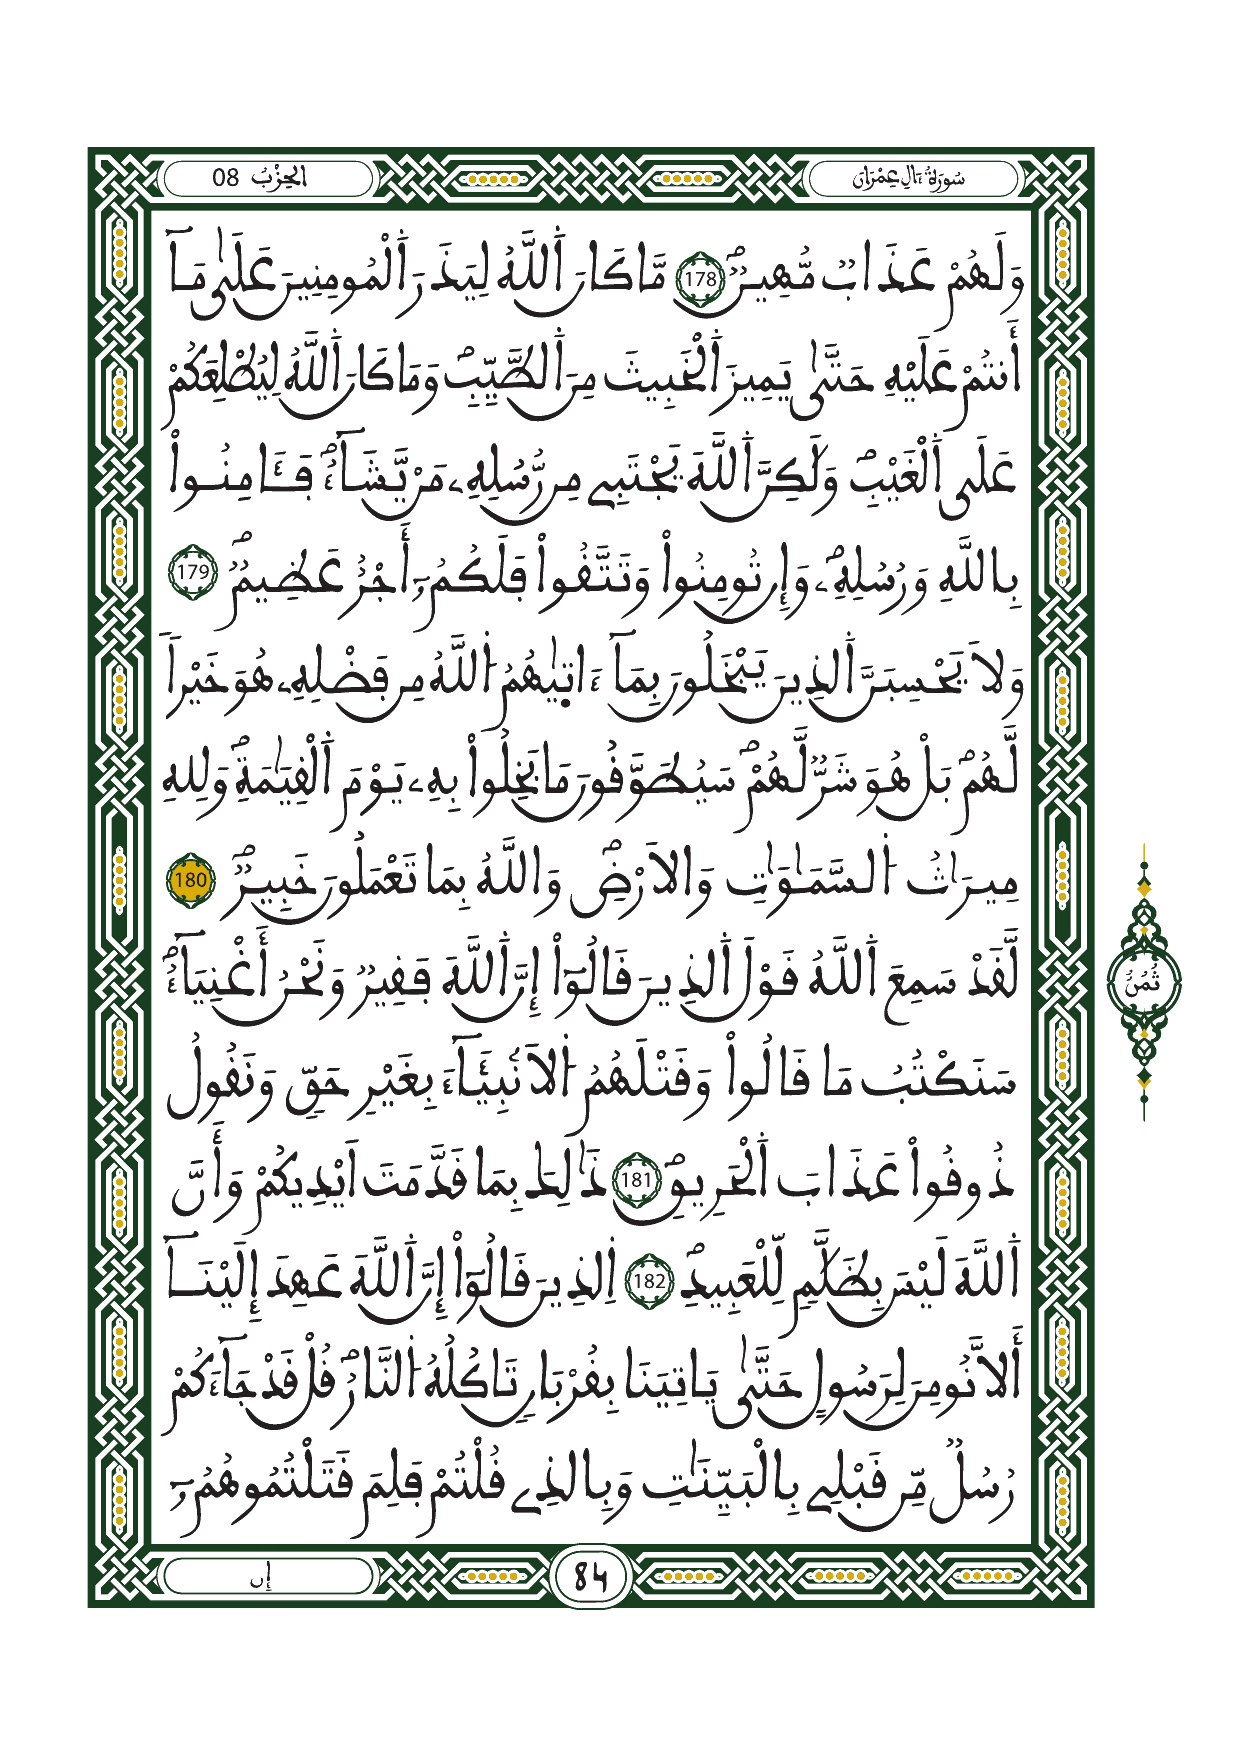 سُورَةُ ءَالِ عِمْرَان
الحِزْبُ 08
وَلَهُمْ عَذَابٌ مُّهِينٌ 178 مَّا كَانَ اَ۬للَّهُ لِيَذَرَ اَ۬لْمُومِنِينَ عَلَىٰ مَآ
أَنتُمْ عَلَيْهِ حَتَّىٰ يَمِيزَ اَ۬لْخَبِيثَ مِنَ اَ۬لطَّيِّبِۖ وَمَا كَانَ اَ۬للَّهُ لِيُطْلِعَكُمْ
عَلَى اَ۬لْغَيْبِۖ وَلَٰكِنَّ اَ۬للَّهَ يَجْتَبِے مِن رُّسُلِهِۦ مَنْ يَّشَآءُۖ فَـَٔامِنُواْ
بِاللَّهِ وَرُسُلِهِۦۖ وَإِن تُومِنُواْ وَتَتَّقُواْ فَلَكُمُۥٓ أَجْرٌ عَظِيمٌۖ 179
وَلَا يَحْسِبَنَّ اَ۬لذِينَ يَبْخَلُونَ بِمَآ ءَاتٜيٰهُمُ اُ۬للَّهُ مِن فَضْلِهِۦ هُوَ خَيْراٗ
لَّهُمۖ بَلْ هُوَ شَرٌّ لَّهُمْۖ سَيُطَوَّقُونَ مَا بَخِلُواْ بِهِۦ يَوْمَ اَ۬لْقِيَٰمَةِۖ وَلِلهِ
مِيرَٰثُ اُ۬لسَّمَٰوَٰتِ وَالَارْضِۖ وَاللَّهُ بِمَا تَعْمَلُونَ خَبِيرٌۖ 180
لَّقَدْ سَمِعَ اَ۬للَّهُ قَوْلَ اَ۬لذِينَ قَالُوٓاْ إِنَّ اَ۬للَّهَ فَقِيرٌ وَنَحْنُ أَغْنِيَآءُۖ
سَنَكْتُبُ مَا قَالُواْ وَقَتْلَهُمُ اُ۬لَانۢبِيَآءَ بِغَيْرِ حَقٍّ وَنَقُولُ
ذُوقُواْ عَذَابَ اَ۬لْحَرِيقِۖ 181 ذَٰلِكَ بِمَا قَدَّمَتَ اَيْدِيكُمْ وَأَنَّ
اَ۬للَّهَ لَيْسَ بِظَلَّٰمٍ لِّلْعَبِيدِۖ 182 اِ۬لذِينَ قَالُوٓاْ إِنَّ اَ۬للَّهَ عَهِدَ إِلَيْنَآ
أَلَّا نُومِنَ لِرَسُولٍ حَتَّىٰ يَاتِيَنَا بِقُرْبَانٍ تَاكُلُهُ اُ۬لنَّارُۖ قُلْ قَدْ جَآءَكُمْ
رُسُلٌ مِّن قَبْلِے بِالْبَيِّنَٰتِ وَبِالذِے قُلْتُمْ فَلِمَ قَتَلْتُمُوهُمُۥٓ
ثُمُنُ
84
إِن